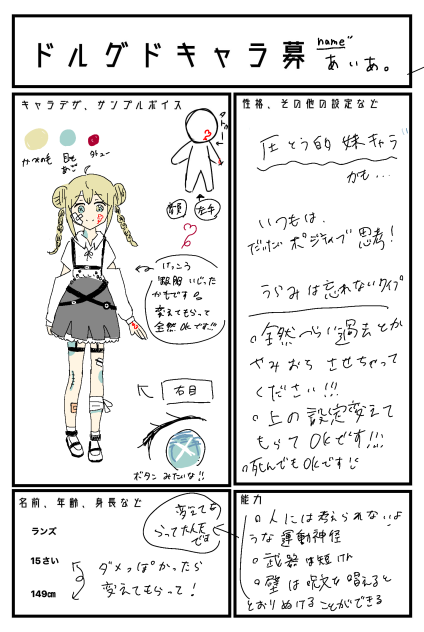 ドルグドキャラ募
name
あぃあ。
キャラデザ、サンプルボイス
かみの毛
目も
タトゥー
タトゥー
顔
左手
けっこう
服も
変えてもらって
全然OKです!!
右目
ボタンみたいな!!
性格、その他の設定など
圧とう的妹キャラ
かも…
いつもは、
だいたいポジティブ思考!
うらみは忘れないタイプ
。全然へらい過去とか
やみおち させちゃって
ください!!!
。上の設定変えて
もらってOKです!!!
。死んでもOKです!!
名前、年齢、身長など
変えても
ランズ
15さい
149㎝
ダメっぽかったら
変えてもらって!
能力
。人には考えられないよ
うな運動神経
。武器は短けん
。壁は呪文を唱えると
とおりぬけることができる